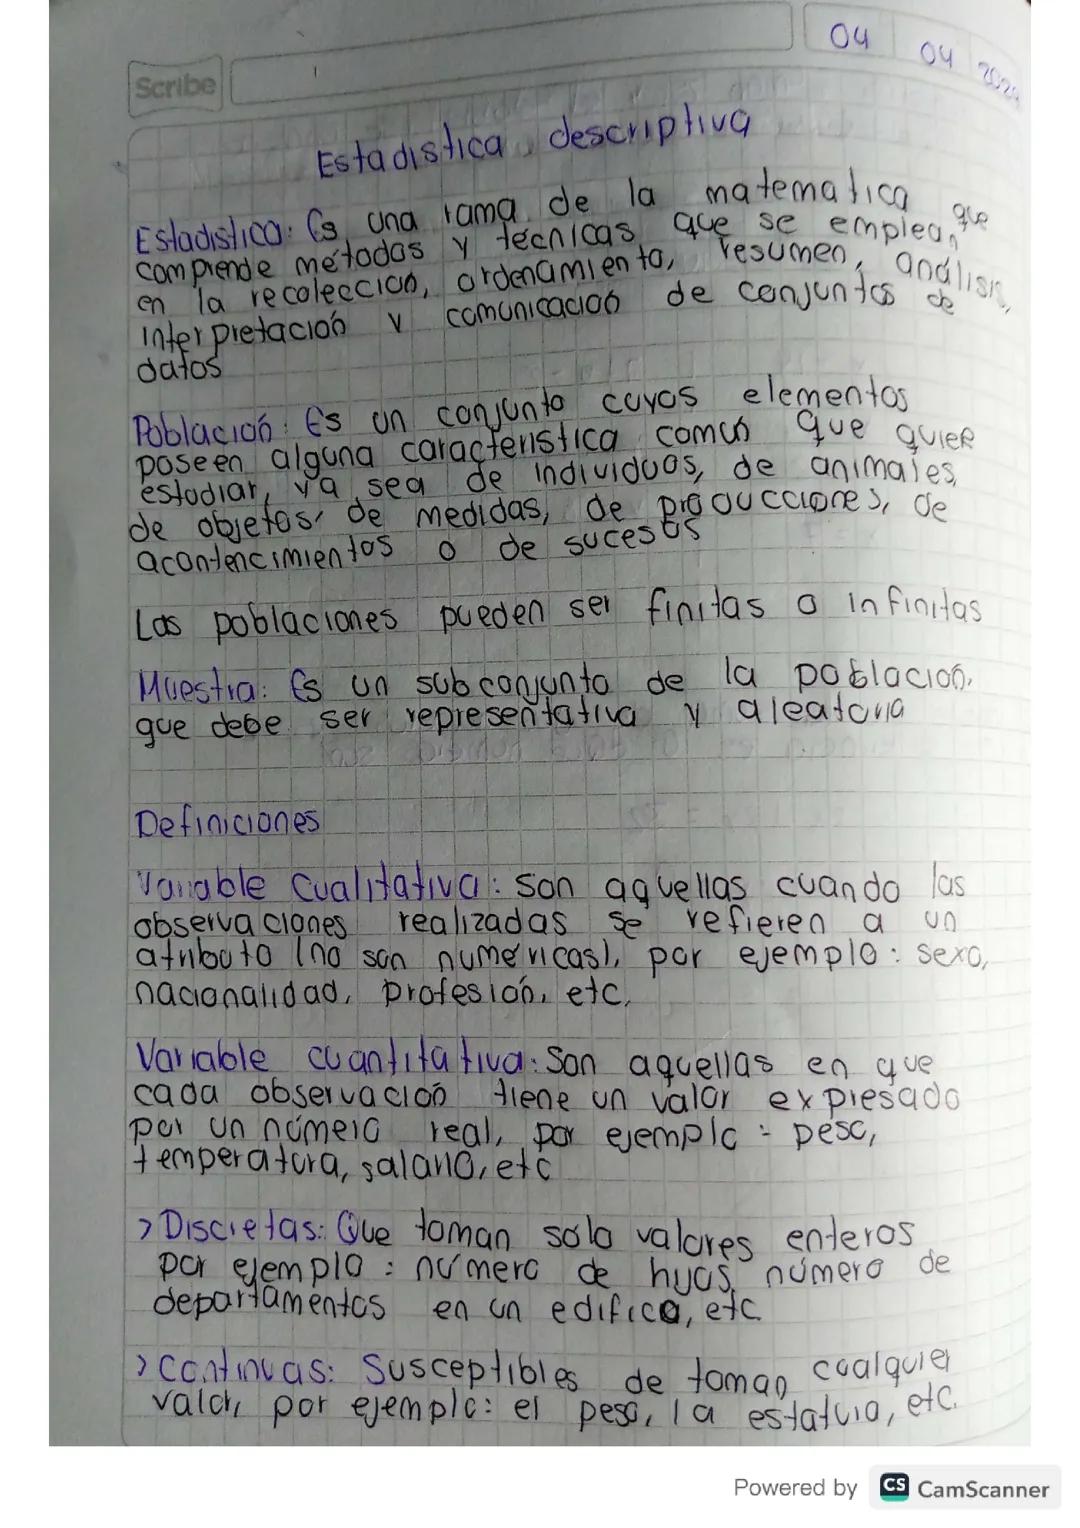 04 04 2024
Scribe
Estadistica descriptiva
Estadistica: Es una rama de la matematica que
comprende métodos y técnicas que se emplean
en la recolección, ordenamiento, resumen, análisis,
interpretación y comunicación de conjuntos de
datos
Población: Es un conjunto cuyos elementos
poseen alguna caracteristica común que quier
estudiar, ya sea de individuos, de animales,
de objetos, de medidas, de producciones, de
acontencimientos o de sucesos
Las poblaciones pueden ser finitas o infinitas
Muestra: Es un subconjunto de la población,
que debe ser representativa y aleatoria
Definiciones
Variable Cualitativa: son aquellas cuando las
observaciones realizadas se refieren a un
atributo (no son numéricas), por ejemplo: sexo,
nacionalidad, profesión, etc,
Variable cuantitativa: Son aquellas en que
cada observación tiene un valor expresado
por un número real, por ejemplo: peso,
temperatura, salario, etc
> Discretas: Que toman sólo valores enteros
por ejemplo: número de hijos, número de
departamentos en un edifico, etc
> Continuas: Susceptibles de toman cualquier
valor, por ejemplo: el peso, la estatura, etc.
Powered by CS CamScanner